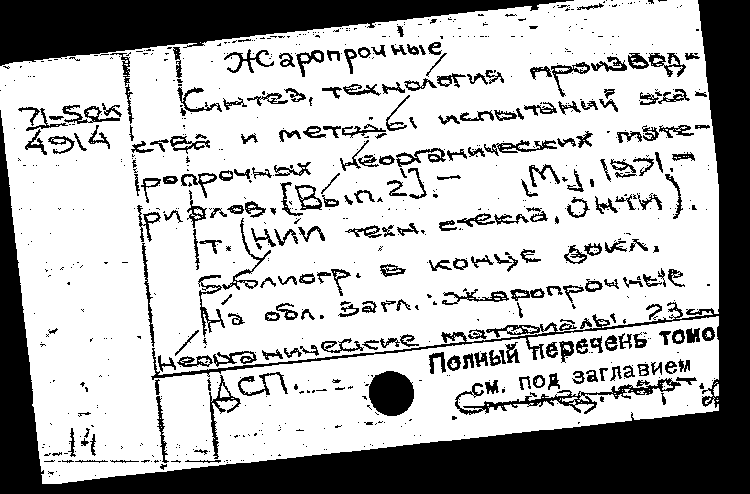 Жаропрочные
71-50К
4914
Синтез, технология производ-
ства и методы испытаний жа-
ропрочных неорганических мате-
риалов. [Вып. 2]. — [М.], 1971. —
т. (НИИ техн. стекла, ОНТИ).
Библиогр. в конце докл.
На обл. загл.: Жаропрочные
неорганические материалы. 23см
Полный перечень томо
см. под заглавием
ДСП.
См. след. кар
14